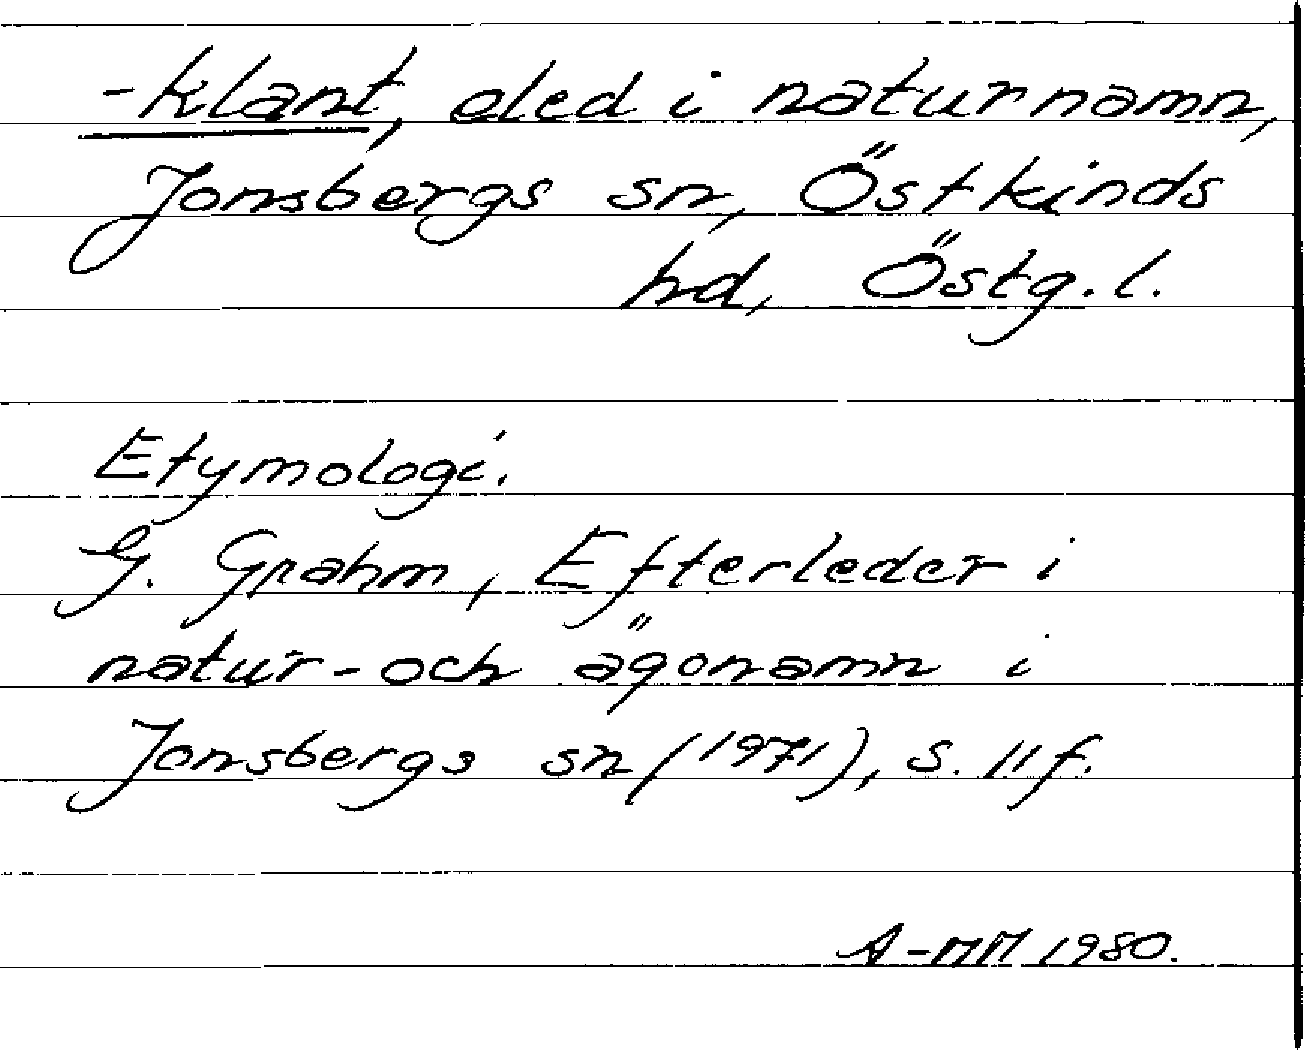 -klant, eled i naturnamn,
Jonsbergs sn, Östkinds
hd, Östg.l.
Etymologi.
G. Grahm, Efterleder i
natur- och ägonamn i
Jonsbergs sn (1971), s. 11 f.
A-MM 1980.